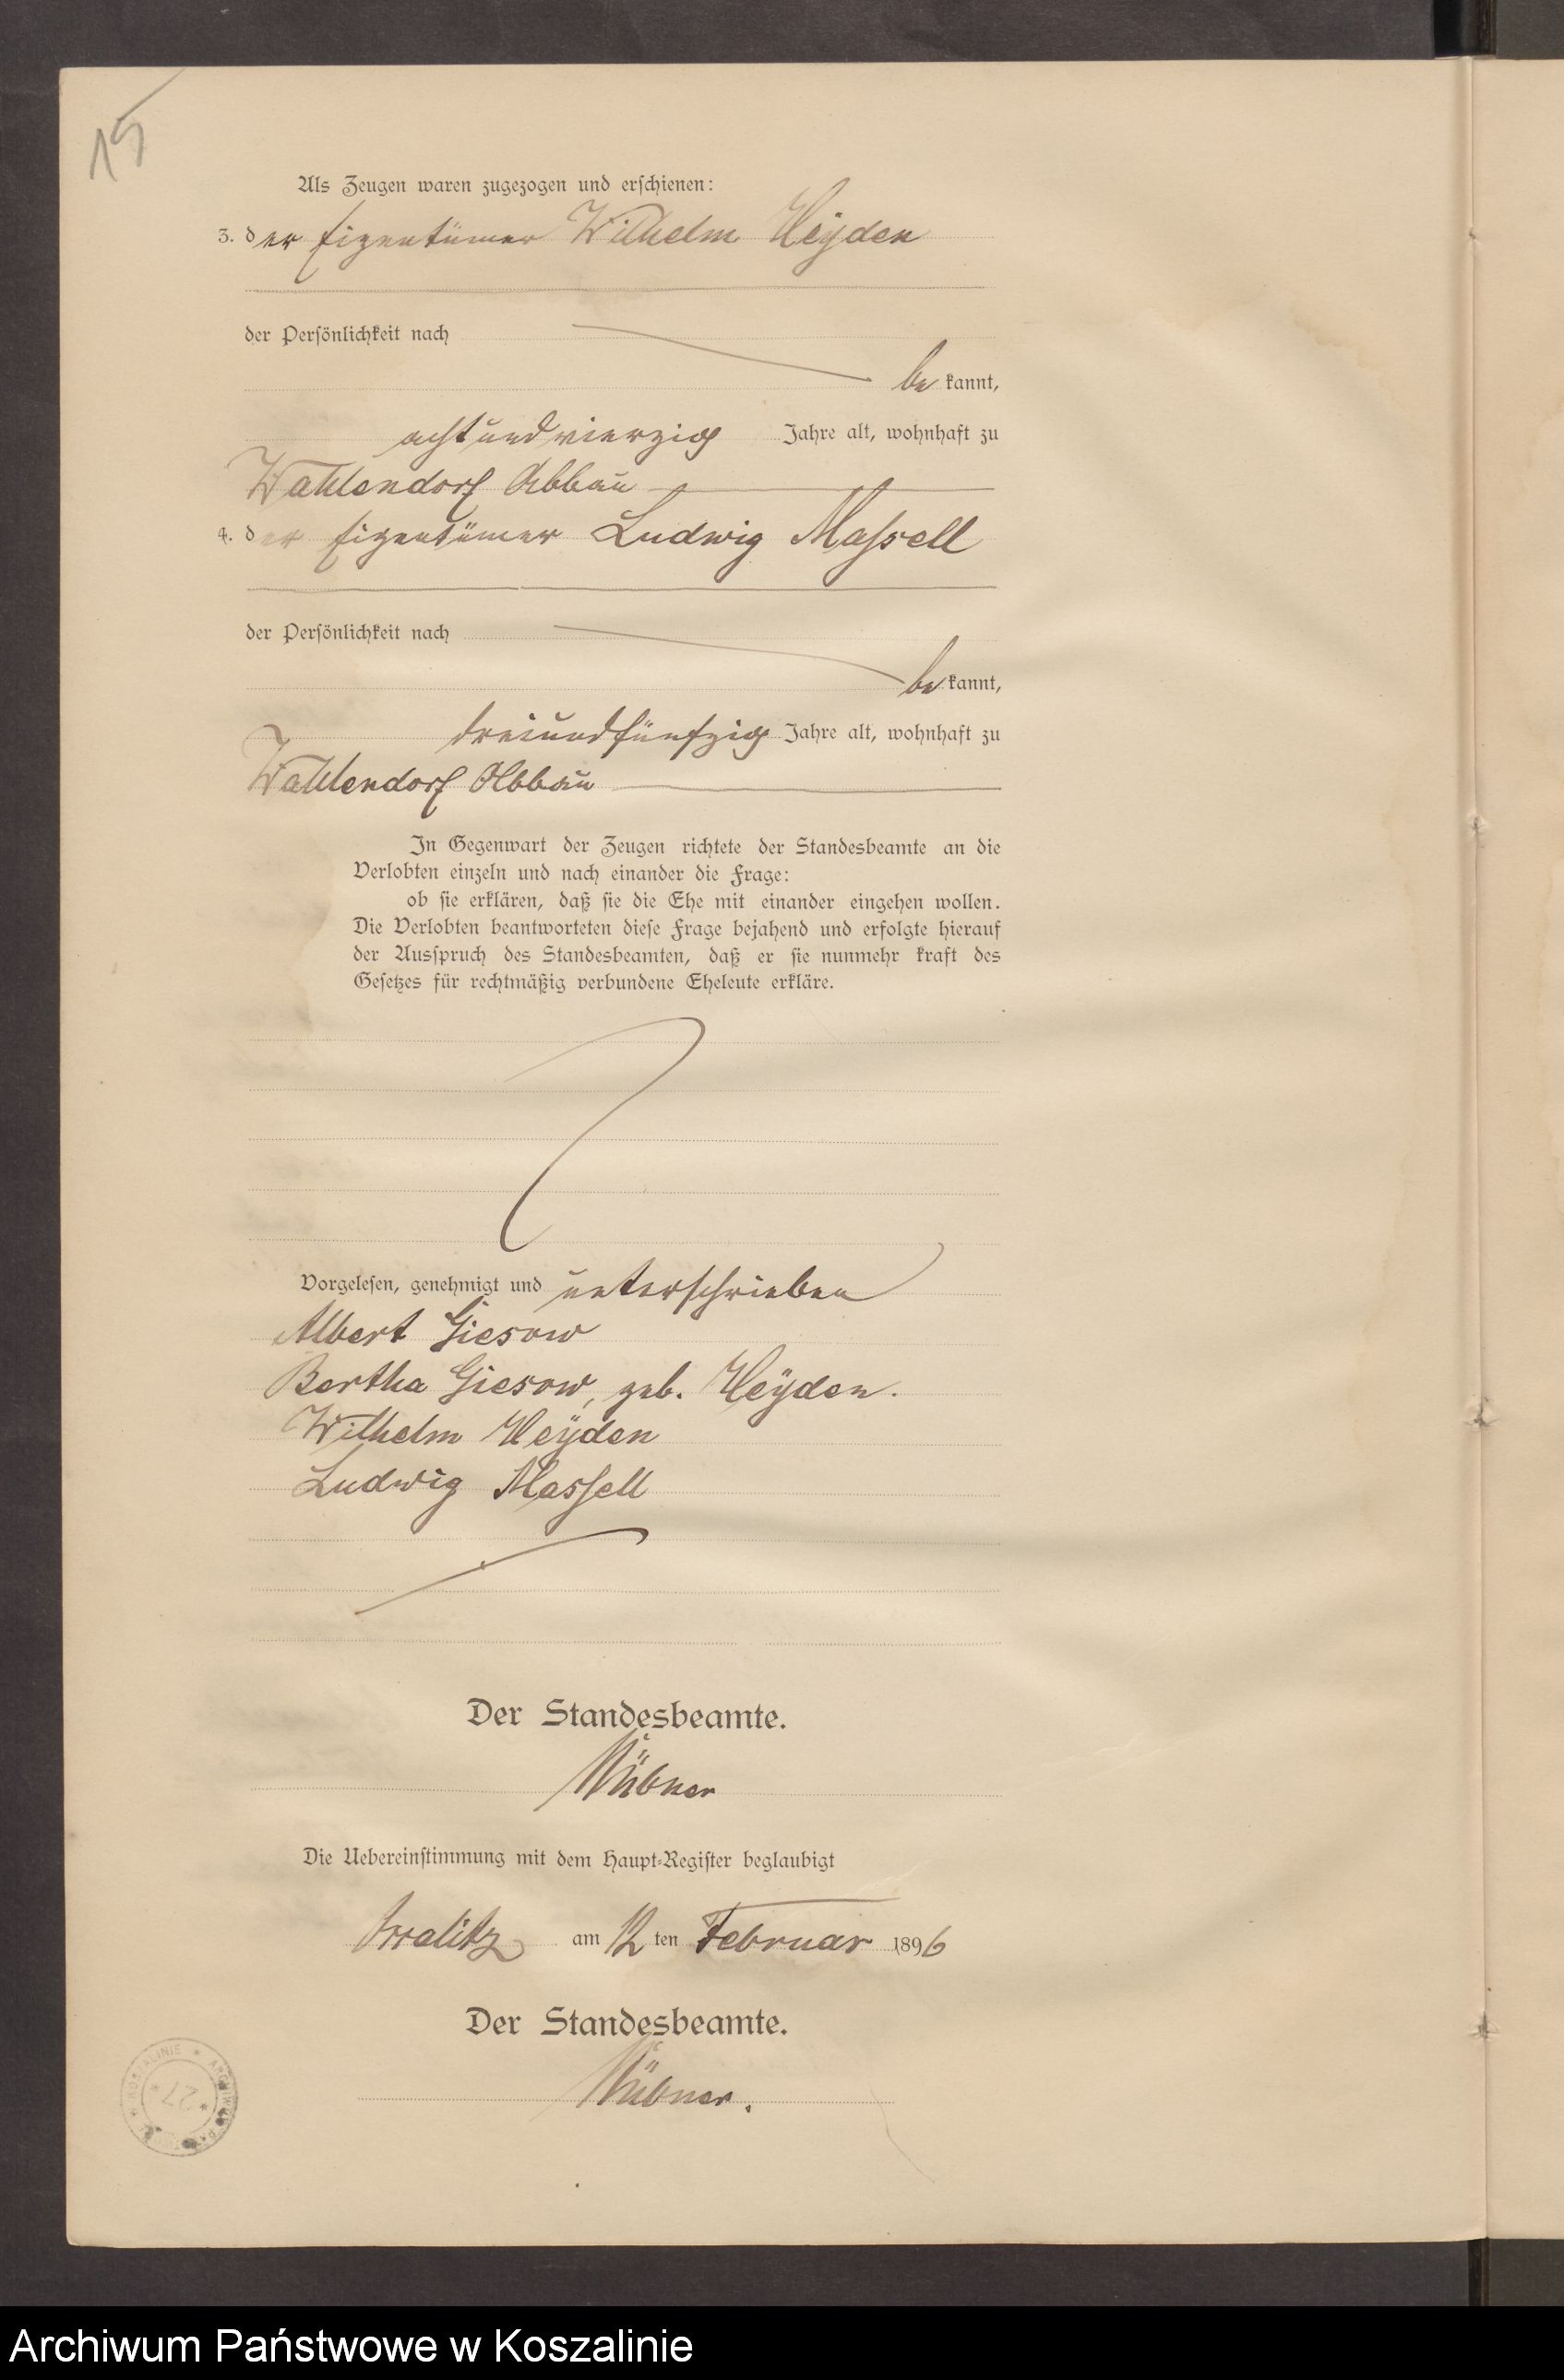 15
Als Zeugen waren zugezogen und erschienen:
3. der Eigentümer Wilhelm Heyden
der Persönlichkeit nach
bekannt,
achtundvierzig Jahre alt, wohnhaft zu
Wahlendorf Abbau
4. der Eigentümer Ludwig Massell
der Persönlichkeit nach
bekannt,
dreiundfünfzig Jahre alt, wohnhaft zu
Wahlendorf Abbau
In Gegenwart der Zeugen richtete der Standesbeamte an die
Verlobten einzeln und nach einander die Frage:
ob sie erklären, daß sie die Ehe mit einander eingehen wollen.
Die Verlobten beantworteten diese Frage bejahend und erfolgte hierauf
der Ausspruch des Standesbeamten, daß er sie nunmehr kraft des
Gesetzes für rechtmäßig verbundene Eheleute erkläre.
Vorgelesen, genehmigt und unterschrieben
Albert Giesow
Bertha Giesow, geb. Heÿden.
Wilhelm Heÿden
Ludwig Massell
Der Standesbeamte.
Die Uebereinstimmung mit dem Haupt-Register beglaubigt
am 12ten Februar 1896
Der Standesbeamte.
27
Archiwum Państwowe w Koszalinie